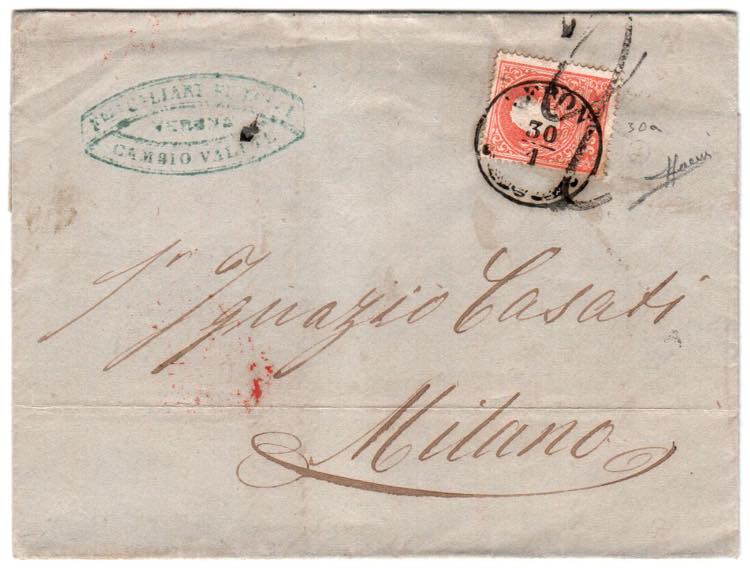 VERONA
CAMBIO VALUTE
VERONA
30
1
30a
Sr Ignazio Casati
Milano